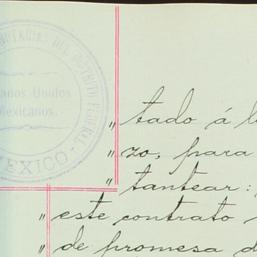 DEL DISTRITO FEDERAL
Unidos
Mexicanos.
MEXICO
" tado á l
" zo, para
" tantear:
" este contrato
" de promesa d